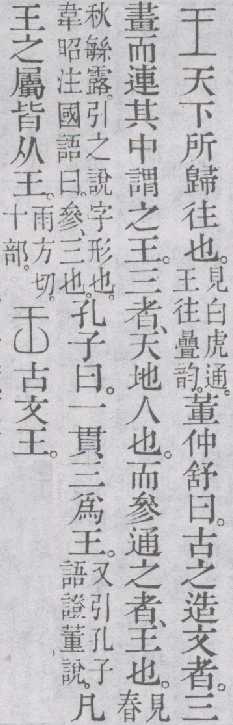 王天下所歸往也。見白虎通。王往疊韵。董仲舒曰。古之造文者。三
畫而連其中謂之王。三者、天地人也。而參通之者、王也。見春
秋緐露。引之說字形也。韋昭注國語曰。參、三也。孔子曰。一貫三爲王。又引孔子語證董說。凡
王之屬皆从王。雨方切。十部。古文王。